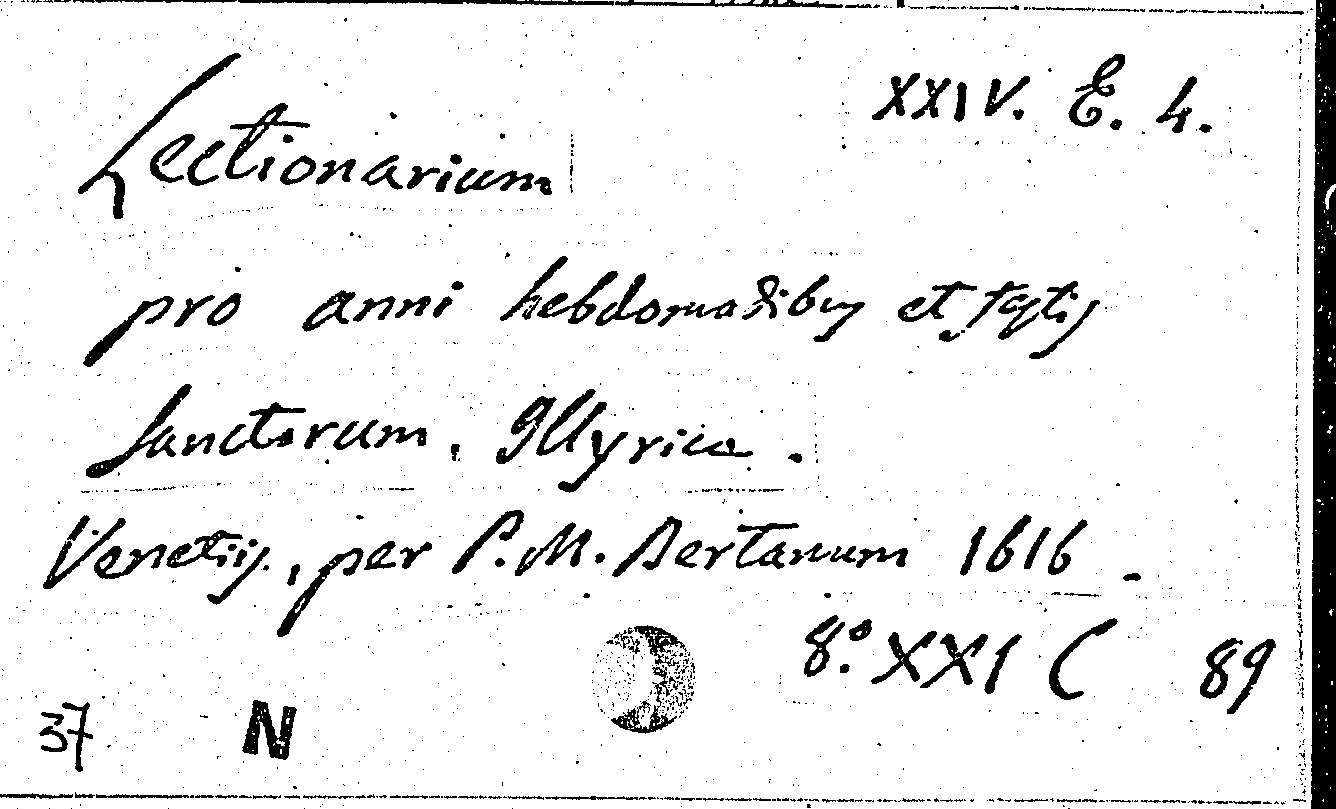 XXIV. E. 4.
Lectionarium
pro anni hebdomadibus et festis
Sanctorum. Illyrice.
Venetijs, per P. M. Bertanum 1616.
8.° XXI C 89
37 N